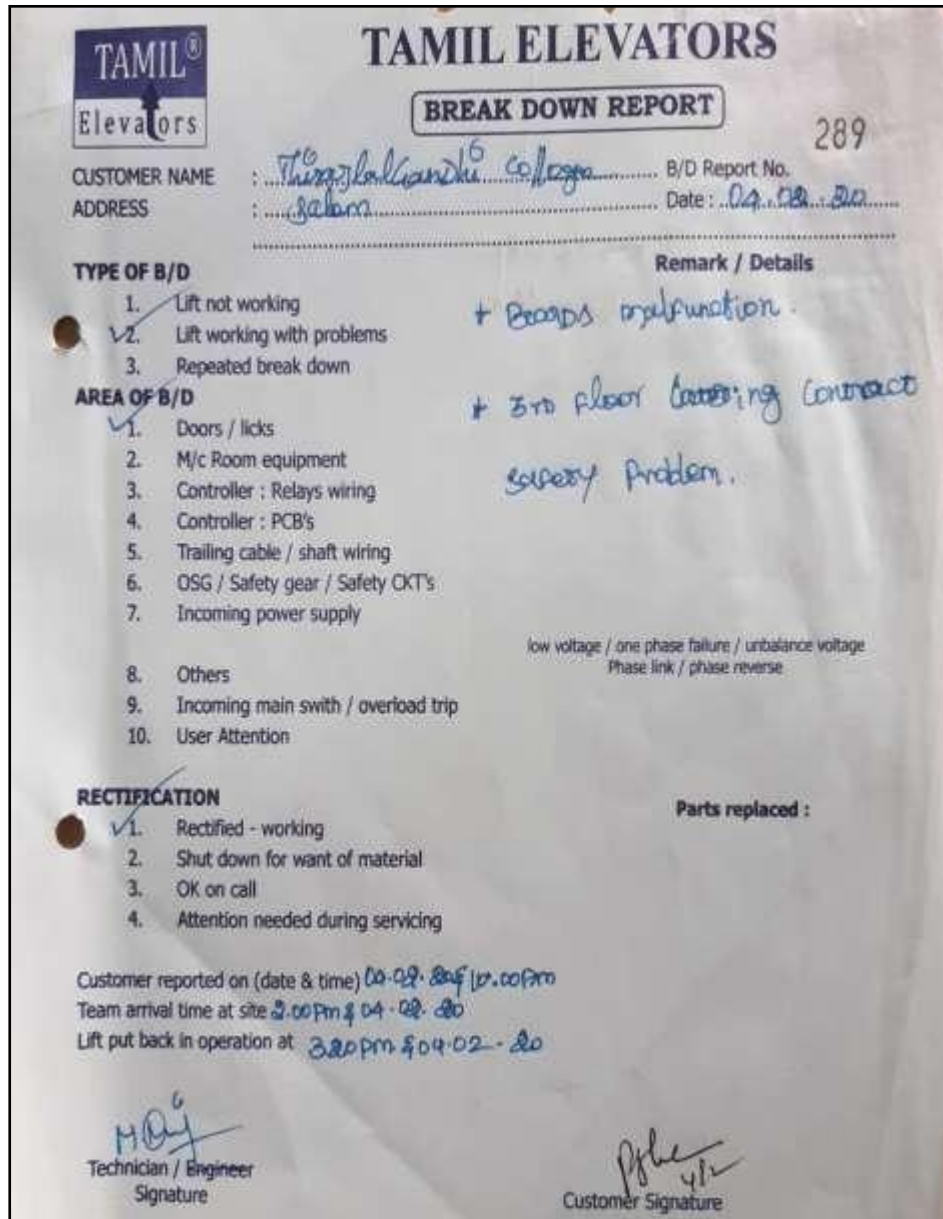 TAMIL®
Elevators
TAMIL ELEVATORS
BREAK DOWN REPORT
289
CUSTOMER NAME : B/D Report No.
ADDRESS : Salem Date : 04.02.20
TYPE OF B/D
Remark / Details
1. Lift not working
2. Lift working with problems
3. Repeated break down
+ malfunction.
AREA OF B/D
+ 3rd Floor Contract
1. Doors / licks
2. M/c Room equipment
Problem.
3. Controller : Relays wiring
4. Controller : PCB's
5. Trailing cable / shaft wiring
6. OSG / Safety gear / Safety CKT's
7. Incoming power supply
low voltage / one phase failure / unbalance voltage
Phase link / phase reverse
8. Others
9. Incoming main swith / overload trip
10. User Attention
RECTIFICATION
Parts replaced :
1. Rectified - working
2. Shut down for want of material
3. OK on call
4. Attention needed during servicing
Customer reported on (date & time)
Team arrival time at site 2.00pm & 04.02.20
Lift put back in operation at 3.20pm & 04.02.20
Technician / Engineer
Signature
4/2
Customer Signature